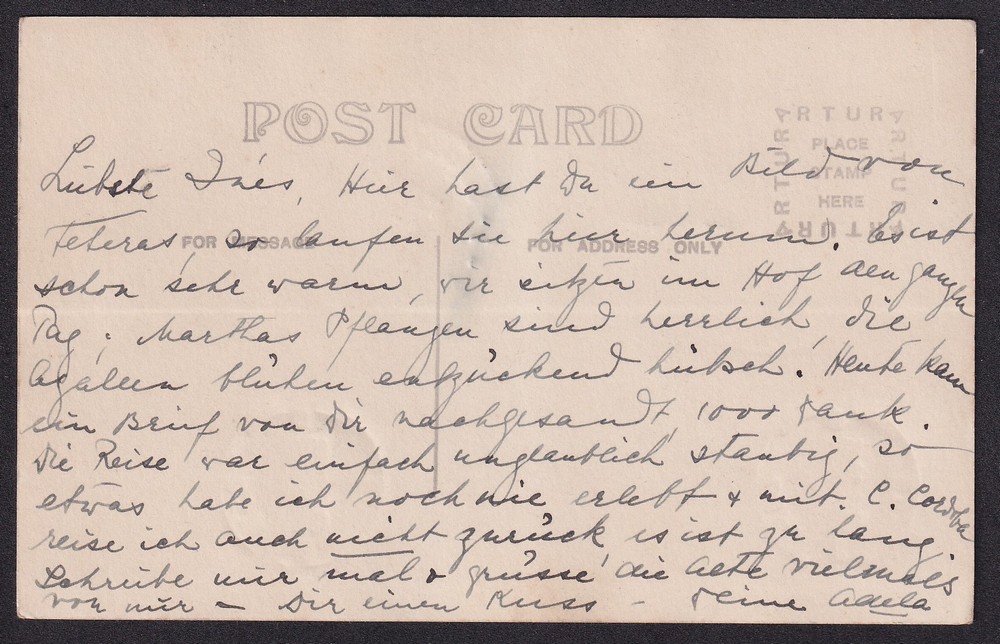 POST CARD
ARTURA
PLACE
STAMP
HERE
FOR MESSAGE
FOR ADDRESS ONLY
Liebste Inés, Hier hast Du ein Bild von
Feteras, so laufen sie hier herum. Es ist
schon sehr warm, wir sitzen im Hof den ganzen
Tag; Marthas Pflanzen sind herrlich, die
Azaleen blühen entzückend hübsch. Heute kam
ein Brief von Dir nachgesandt, 1000 Dank.
Die Reise war einfach unglaublich staubig, so
etwas habe ich noch nie erlebt & mit C. Cordoba
reise ich auch nicht zurück, es ist zu lang.
Schreibe mir mal & grüsse die vielmals
von mir – Dir einen Kuss – Deine Adela